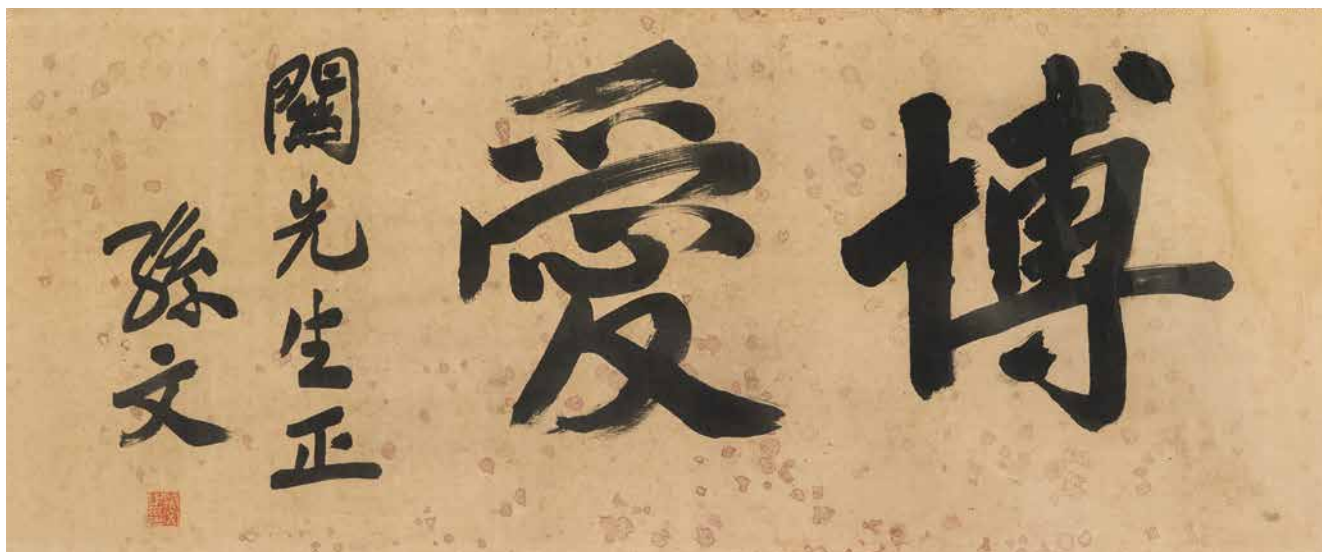 博愛
關先生正
孫文